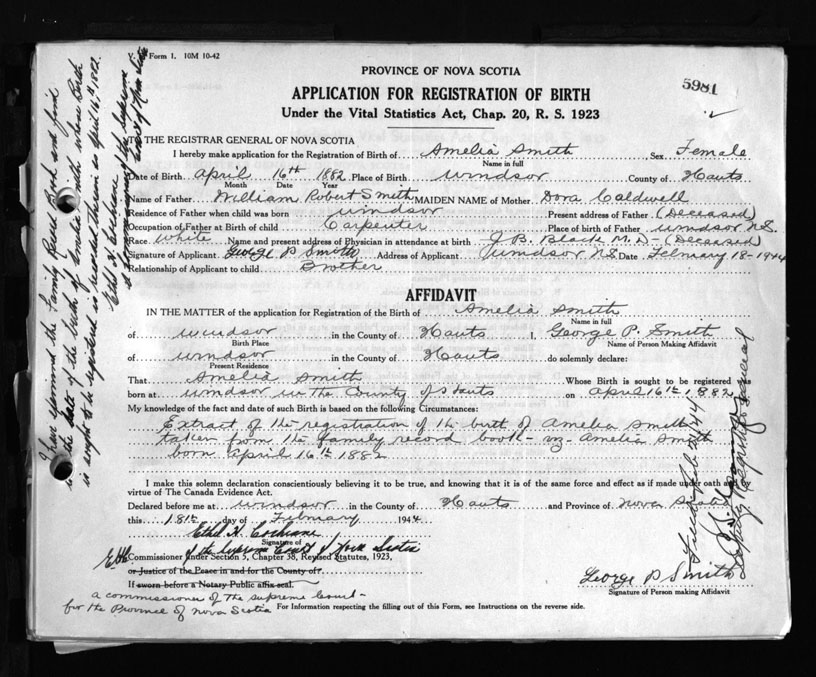 V. S. Form 1. 10M 10-42
PROVINCE OF NOVA SCOTIA
5981
APPLICATION FOR REGISTRATION OF BIRTH
Under the Vital Statistics Act, Chap. 20, R. S. 1923
TO THE REGISTRAR GENERAL OF NOVA SCOTIA
I hereby make application for the Registration of Birth of Amelia Smith Sex Female
Name in full
Date of Birth April 16th 1882 Place of Birth Windsor County of Hants
Month Date Year
Name of Father William Robert Smith MAIDEN NAME of Mother Dora Caldwell
Residence of Father when child was born Windsor Present address of Father (Deceased)
Occupation of Father at Birth of child Carpenter Place of birth of Father Windsor N.S.
Race White Name and present address of Physician in attendance at birth J. B. Black M.D - (Deceased)
Signature of Applicant George P Smith Address of Applicant Windsor N.S. Date February 18 - 1944
Relationship of Applicant to child Brother
AFFIDAVIT
IN THE MATTER of the application for Registration of the Birth of Amelia Smith
Name in full
of Windsor in the County of Hants I, George P. Smith
Birth Place Name of Person Making Affidavit
of Windsor in the County of Hants do solemnly declare:
Present Residence
That Amelia Smith Whose Birth is sought to be registered was
born at Windsor in the County of Hants on April 16th 1882
My knowledge of the fact and date of such Birth is based on the following Circumstances:
Extract of the registration of the birth of Amelia Smith
taken from the family record book - viz - Amelia Smith
born April 16th 1882
I make this solemn declaration conscientiously believing it to be true, and knowing that it is of the same force and effect as if made under oath and by
virtue of The Canada Evidence Act.
Declared before me at Windsor in the County of Hants and Province of Nova Scotia
this 18th day of February 1944
Ethel H. Cochrane
Signature of
of the Supreme Court of Nova Scotia
EHC Commissioner under Section 5, Chapter 38, Revised Statutes, 1923,
or Justice of the Peace in and for the County of
If sworn before a Notary Public affix seal.
George P Smith
Signature of Person making Affidavit
a commissioner of the supreme court -
for the Province of Nova Scotia
For Information respecting the filling out of this Form, see Instructions on the reverse side.
I have examined the family Record Book and find
the date of the birth of Amelia Smith whose Birth
is sought to be registered is recorded therein as April 16th 1882.
Ethel H. Cochrane
A Commissioner of the Supreme
Court of Nova Scotia